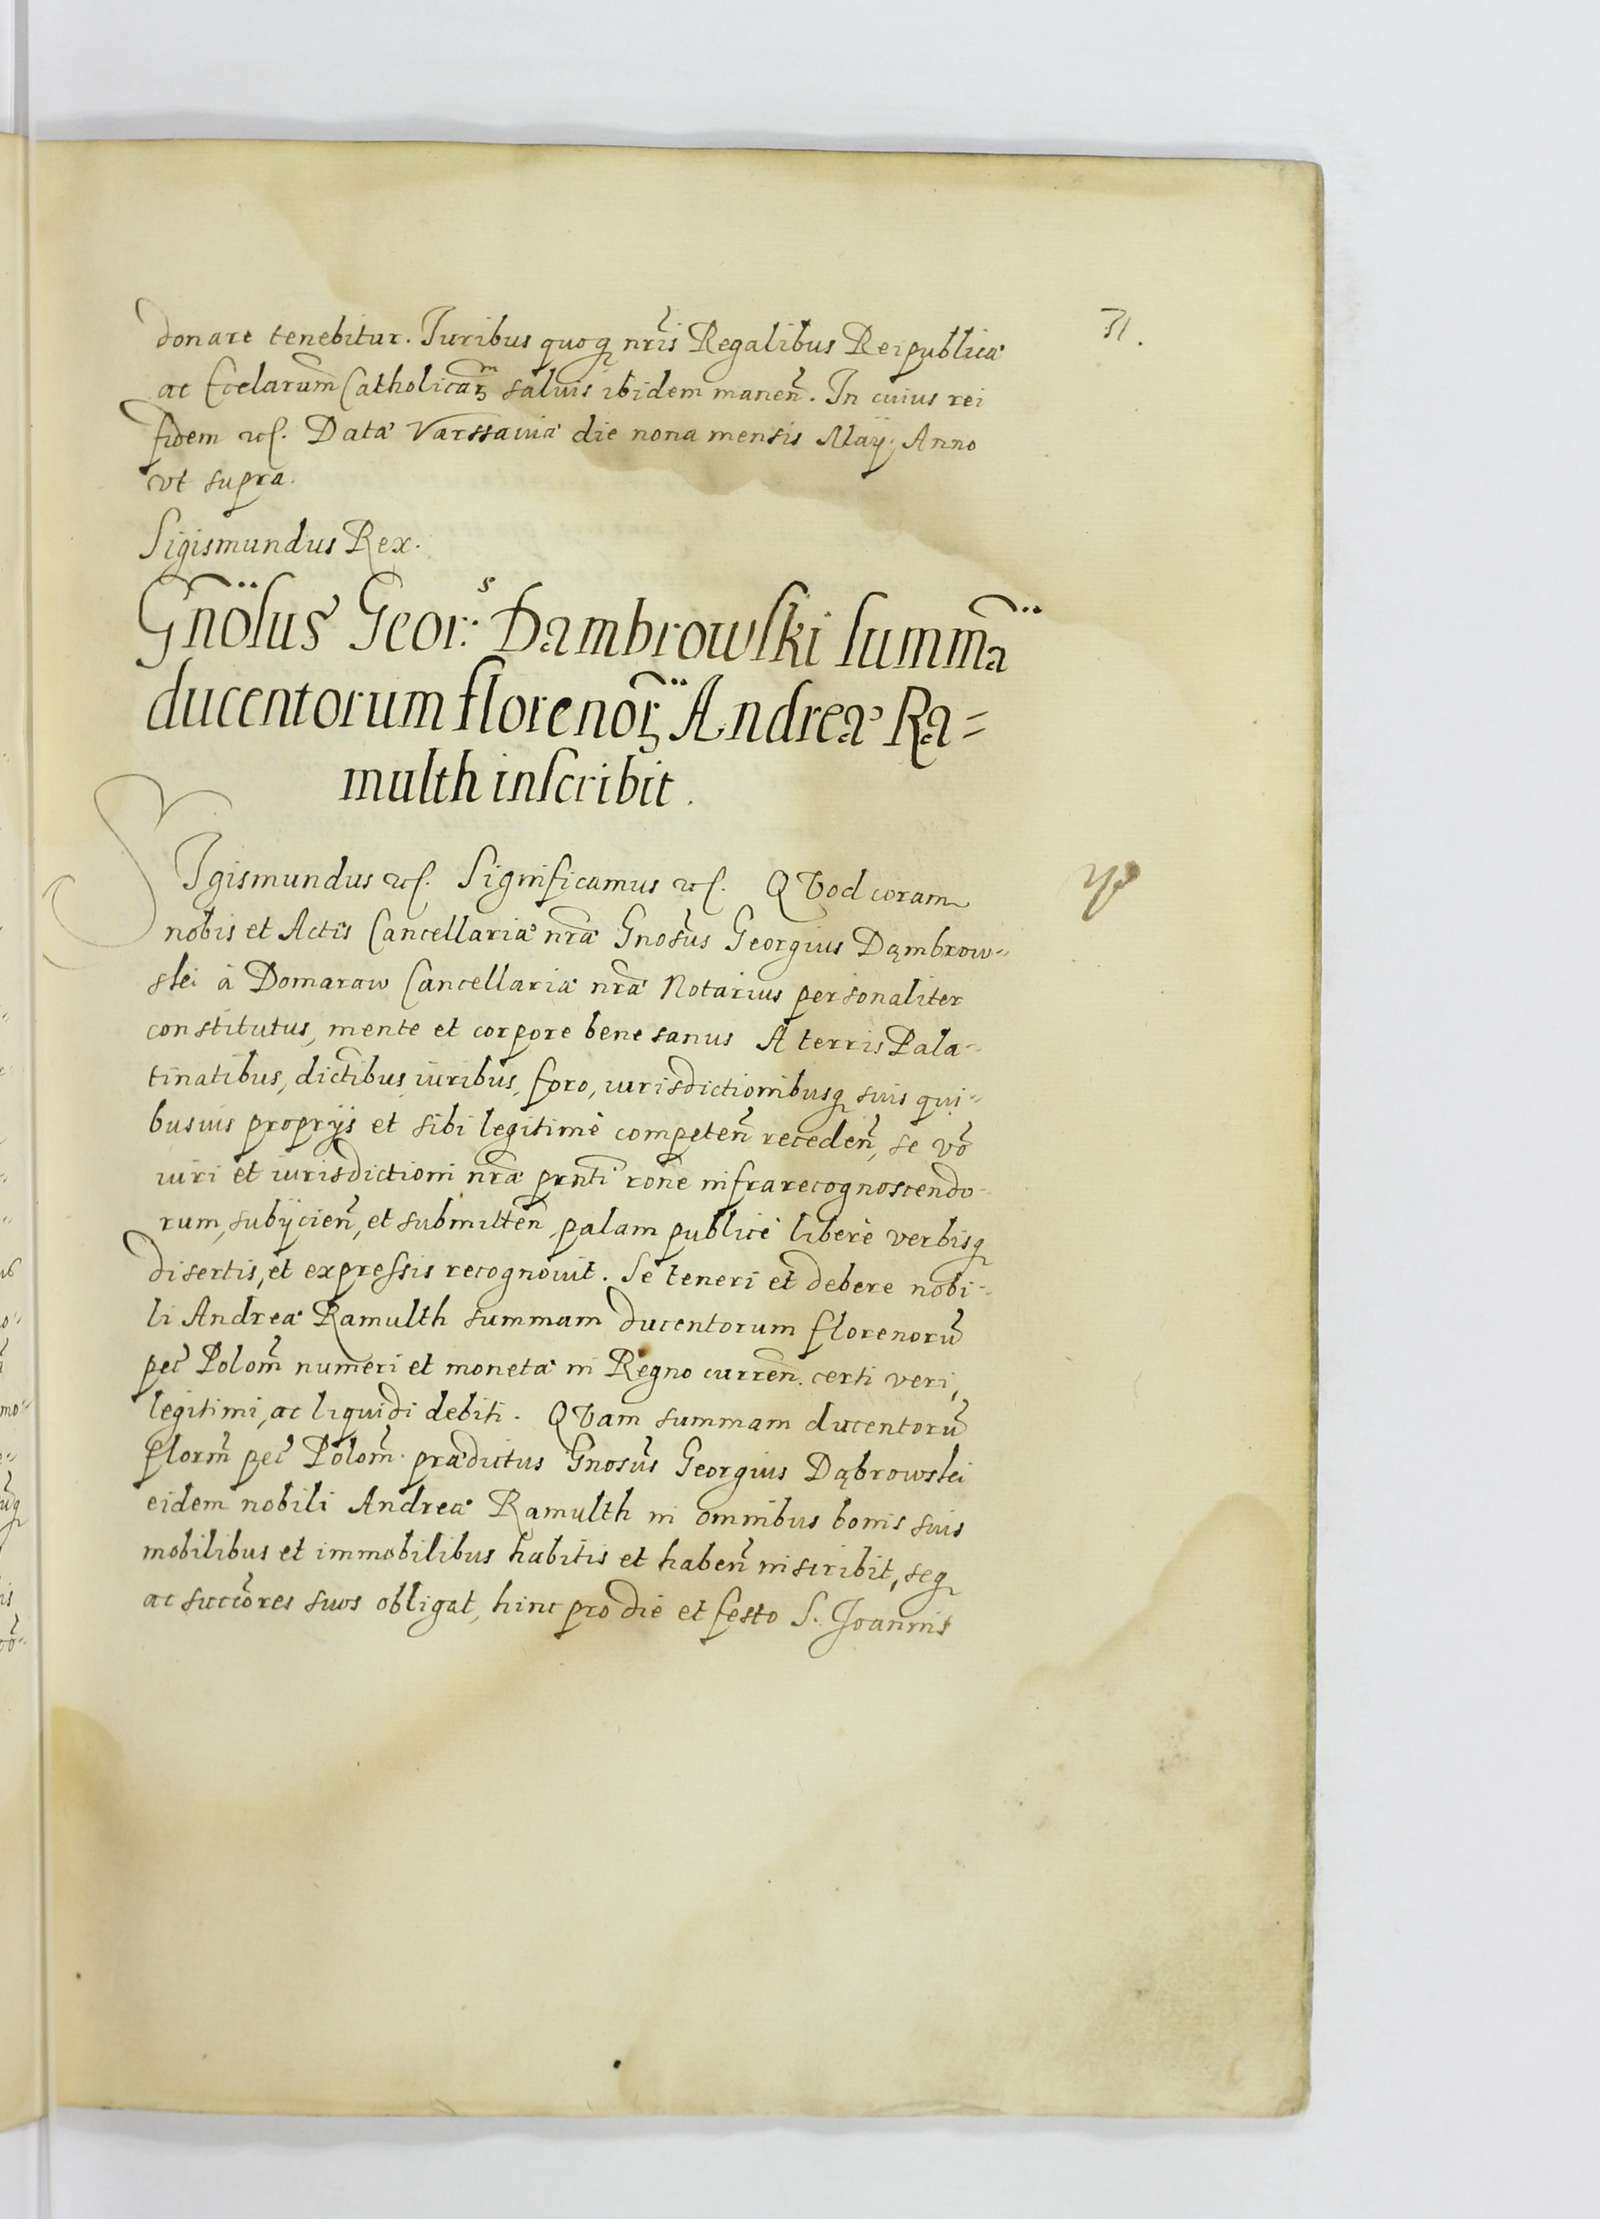 31.
donare tenebitur. Iuribus quoq nr̃is Regalibus Reipublicæ
ac Ecclarum Catholicarm̃ saluis ibidem maneñ. In cuius rei
fidem etc. Datæ Varssauiæ die nona mensis Maij, Anno
vt supra.
Sigismundus Rex.
Gñosus Geor:s Dąmbrowski summą̃
ducentorum florenor̃ Andreæ Ra=
multh inscribit.
SIgismundus etc. Significamus etc. QVod coram
nobis et Actis Cancellariæ nr̃æ Gnosus̃ Georgius Dąmbrow=
ski à Domaraw Cancellariæ nr̃æ Notarius personaliter
constitutus, mente et corpore bene sanus A terris Pala=
tinatibus, dictibus iuribus, foro, iurisdictionibusq suis qui=
busuis proprijs et sibi legitimè competeñ recedeñ, se vo̊
iuri et iurisdictioni nr̃æ prñti rõne infrarecognoscendo=
rum, subijcieñ, et submitteñ palam publicè liberè verbisq
disertis, et expressis recognouit. Se teneri et debere nobi=
li Andreæ Ramulth summam ducentorum florenorũ
pec̃ Polom̃ numeri et monetæ in Regno curreñ. certi veri,
legitimi, ac liquidi debiti. QVam summam ducentorũ
florm̃ pec̃ Polom̃ prædictus Gnosus̃ Georgius Dąbrowski
eidem nobili Andreæ Ramulth in omnibus bonis suis
mobilibus et immobilibus habitis et habeñ inscribit, seq
ac succõres suos obligat, hinc pro die et festo S. Joannis